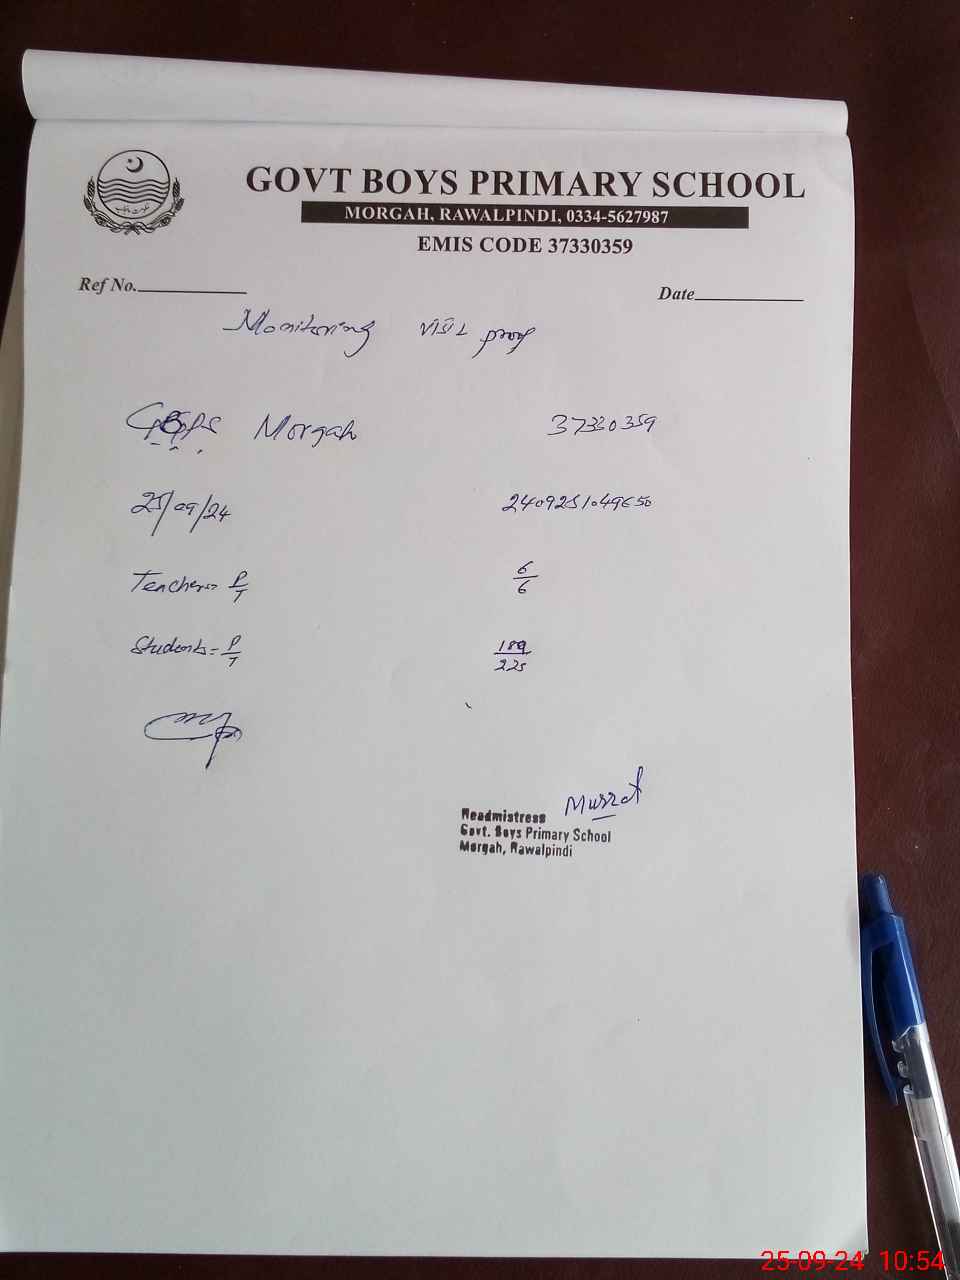 GOVT BOYS PRIMARY SCHOOL
MORGAH, RAWALPINDI, 0334-5627987
EMIS CODE 37330359
Ref No. Date
Monitoring visit proof
GBPS Morgah 37330359
25/09/24 2409251049650
Teachers= P/T 6/6
Students= P/T 189/225
Musrat
Headmistress
Govt. Boys Primary School
Morgah, Rawalpindi
25-09-24 10:54